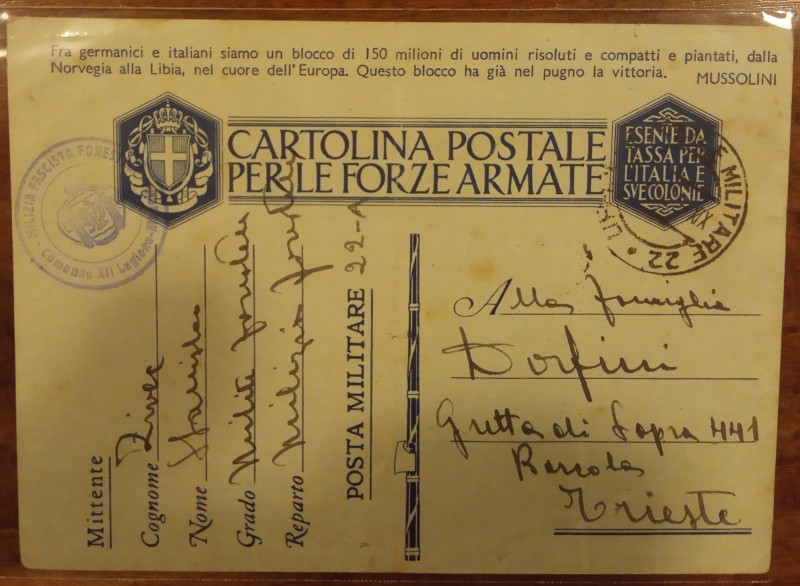 Fra germanici e italiani siamo un blocco di 150 milioni di uomini risoluti e compatti e piantati, dalla
Norvegia alla Libia, nel cuore dell'Europa. Questo blocco ha già nel pugno la vittoria. MUSSOLINI
CARTOLINA POSTALE
PER LE FORZE ARMATE
ESENTE DA
TASSA PER
L'ITALIA E
SVE COLONIE
MILIZIA FASCISTA FOREST
Comando XII Legione
MILITARE 22
Mittente
Cognome
Nome
Grado Milite forestale
Reparto Milizia forestale
POSTA MILITARE 22-A
Alla famiglia
Dorfini
Gretta di Sopra 441
Trieste